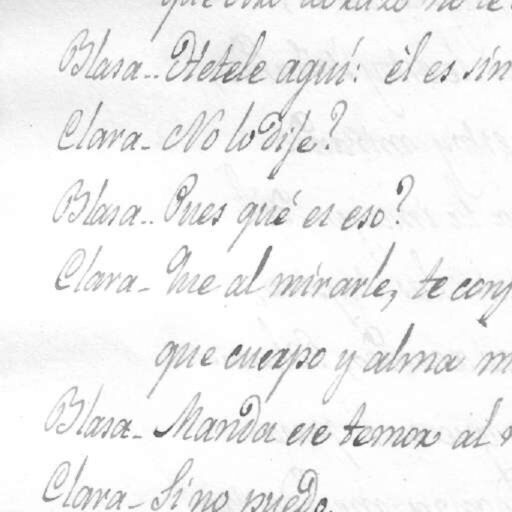 Blasa.. Hétele aquí: él es sin
Clara- No lo dije?
Blasa.. Pues qué es eso?
Clara- Que al mirarle, te conf
que cuerpo y alma m
Blasa- Manda ese temor al
Clara- Si no puedo.